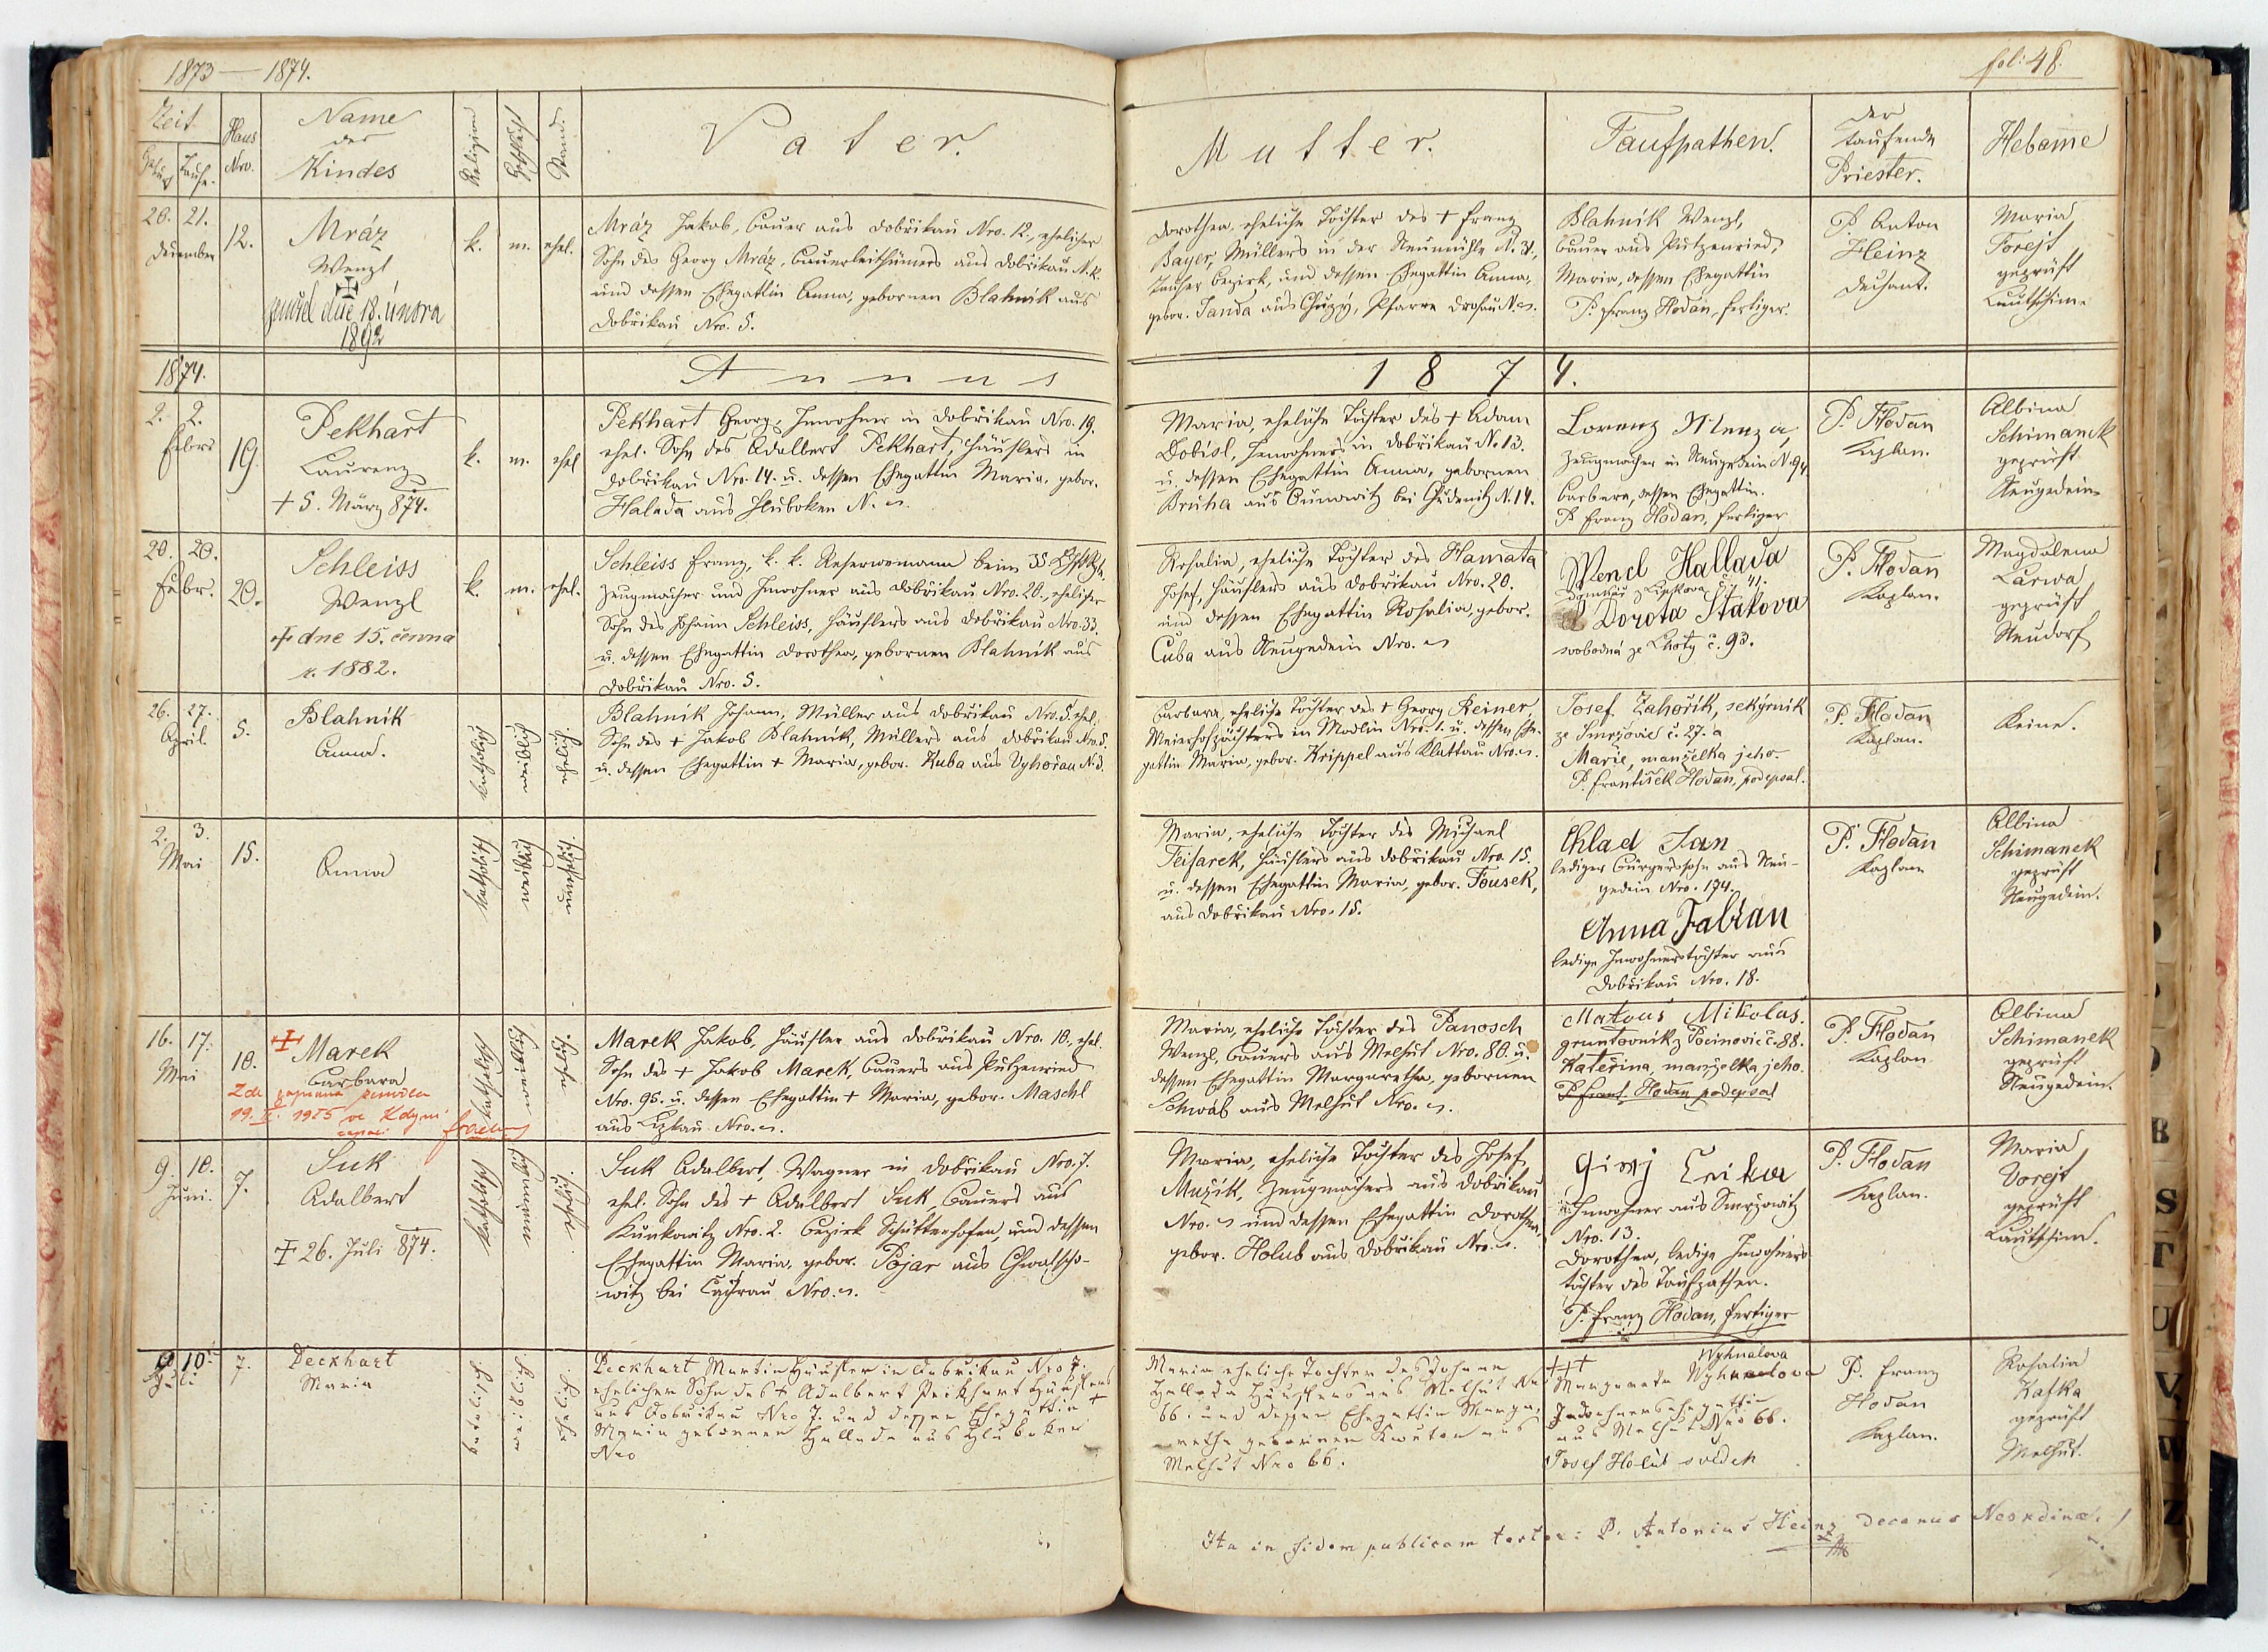 1873 — 1874.
fol: 48.
Zeit
Geburt
Taufe.
Haus
Nro.
Name
des
Kindes
Religion
Geschlecht
Stand.
Vater.
Mutter.
Taufpathen.
der
taufende
Priester.
Hebame
20. 21.
Dezember
12.
Mráz
Wenzl
zemřel dne 18. února
1892
k.
m.
ehel.
Mráz Jakob, Bauer aus Dobřikau Nro. 12., ehelicher
Sohn des Georg Mráz, Bauerleithümers aus Dobřikau N. 12.
und dessen Ehegattin Anna, gebornen Blahnik aus
Dobřikau Nro. 5.
Dorothea, eheliche Tochter des + Franz
Bayer, Müllers in der Neumühle N. 31.,
Tauser Bezirk, und dessen Ehegattin Anna,
gebor. Janda aus Chuzý, Pfarre Drosau N.
Blahnik Wenzl,
Bauer aus Putzenried,
Maria, dessen Ehegattin
P. Franz Hodan, Fertiger.
P. Anton
Heinz
Dechant.
Maria
Forejt
geprüft
Lautschim.
1874.
Annus 1874.
2. 2.
Febr.
19.
Pekhart
Laurenz
+ 5. März 874.
k.
m.
ehel
Pekhart Georg, Inwohner in Dobřikau Nro. 19.
ehel. Sohn des Adalbert Pekhart, Häuslers in
Dobřikau Nro. 14. u. dessen Ehegattin Maria, gebor.
Halada aus Hluboken N.
Maria, eheliche Tochter des + Adam
Dobisl, Inwohners in Dobřikau N. 13.
u. dessen Ehegattin Anna, gebornen
Bruha aus Bunowitz bei Chudenitz N. 14.
Lorenz
Zeugmacher in Neugedein N. 94
Barbara, dessen Ehegattin.
P. Franz Hodan, Fertiger
P. Hodan
Kaplan.
Albina
Schimanek
geprüft
Neugedein
20. 20.
Febr.
20.
Schleiss
Wenzl
+ dne 15. června
r. 1882.
k.
m.
ehel.
Schleiss Franz, k. k. Reservemann beim 35
Zeugmacher und Inwohner aus Dobřikau Nro. 20., ehelicher
Sohn des Johann Schleiss, Häuslers aus Dobřikau Nro. 33.
u. dessen Ehegattin Dorothea, gebornen Blahnik aus
Dobřikau Nro. 5.
Rosalia, eheliche Tochter des Hamata
Josef, Häuslers aus Dobřikau Nro. 20.
und dessen Ehegattin Rosalia, gebor.
Cuba aus Neugedein Nro.
Wencl Hallada
domkář z Lipkova č. 41.
Dorota Štakova
svobodná ze Lhoty č. 93.
P. Hodan
Kaplan.
Magdalena
Larwa
geprüft
Neudorf
26. 27.
April.
5.
Blahnik
Anna.
katholisch
weiblich
ehelich.
Blahnik Johann, Müller aus Dobřikau Nro. 5. ehel.
Sohn des + Jakob Blahnik, Müllers aus Dobřikau Nro. 5.
u. dessen Ehegattin + Maria, gebor. Kuba aus Vyhořau N. 3.
Barbara, eheliche Tochter des + Georg Reiner,
Meierhofpächters in Modlin Nro. 1. u. dessen Ehe-
gattin Maria, gebor. Krippel aus Klattau Nro.
Josef Zahořík, sekyrník
ze Smržovic č. 27. a
Marie, manželka jeho.
P. František Hodan, podepsal.
P. Hodan
Kaplan.
Keine.
2. 3.
Mai
15.
Anna
katholisch
weiblich
unehelich.
Maria, eheliche Tochter des Michael
Teisarek, Häuslers aus Dobřikau Nro. 15.
u. dessen Ehegattin Maria, gebor. Tousek,
aus Dobřikau Nro. 15.
Chlad Jan
lediger Bürgerssohn aus Neu-
gedein Nro. 174.
Anna Fabian
ledige Inwohnerstochter aus
Dobřikau Nro. 18.
P. Hodan
Kaplan
Albina
Schimanek
geprüft
Neugedein.
16. 17.
Mai
10.
Marek
Barbara
Zde zapsaná zemřela
19. 1925 ve Kdyni
katholisch
weiblich
ehelich.
Marek Jakob, Häusler aus Dobřikau Nro. 10., ehel.
Sohn des + Jakob Marek, Bauers aus Putzenried
Nro. 95. u. dessen Ehegattin + Maria, gebor. Maschl
aus Lipkau Nro.
Maria, eheliche Tochter des Panosch
Wenzl, Bauers aus Melhut Nro. 80. u.
dessen Ehegattin Margaretha, gebornen
Schwáb aus Melhut Nro.
Matous Mikolas.
gruntovník z Pocinovic č. 88.
Kateřina, manželka jeho.
P. Frant. Hodan podepsal
P. Hodan
Kaplan
Albina
Schimanek
geprüft
Neugedein.
9. 10.
Juni.
7.
Suk
Adalbert
+ 26. Juli 874.
katholisch
männlich
ehelich.
Suk Adalbert, Wagner in Dobřikau Nro. 7.
ehel. Sohn des + Adalbert Suk, Bauers aus
Kunkowitz Nro. 2. Bezirk Schüttenhofen, und dessen
Ehegattin Maria, gebor. Pojar aus Chwalscho-
witz bei Čachrau Nro.
Maria, eheliche Tochter des Josef
Muzik, Zeugmachers aus Dobřikau
Nro. und dessen Ehegattin Dorothea,
gebor. Holub aus Dobřikau Nro.
Inwohner aus Smrzowitz
Nro. 13.
Dorothea, ledige Inwohners-
tochter des Taufpathen.
P. Franz Hodan, Fertiger
P. Hodan
Kaplan.
Maria
Vorejt
geprüft
Lautschim.
10.
Juli
7.
Deckhart
Maria
katolisch
weiblich
ehelich
Peckhart Martin Häusler in Dobrikau Nro 7.
ehelicher Sohn des + Adalbert Peikhart Häuslers
aus Dobrikau Nro 7. und dessen Ehegattin +
Maria gebornen Hallada aus Hluboken
Nro
Maria eheliche Tochter des Johann
Hallada Häuslers aus Melhut Nro
66. und dessen Ehegattin Marga-
retha gebornen Kwuton aus
Melhut Nro 66.
+++
Wyhnalova
Margareta Wyhnalova
Inwohnersehegattin
aus Melhut Nro 66.
Josef Holub svědek
P. Franz
Hodan
Kaplan.
Rosalia
Kafka
geprüft
Melhut.
Ita in fidem publicam testor: P. Antonius Heinz Decanus Neogdinae.